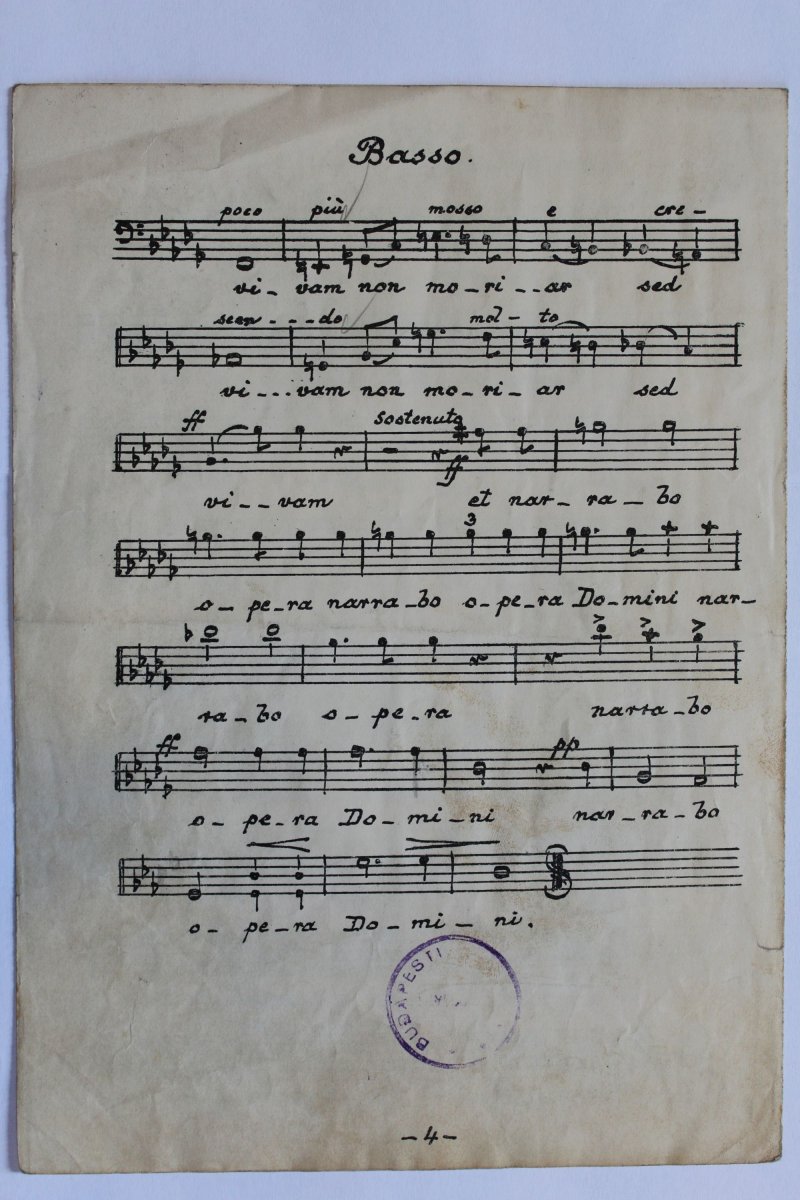 Basso.
poco più mosso e cre-
vi- vam non mo-ri--ar sed
scen---do mol-to
vi---vam non mo-ri-ar sed
ff sostenuto
ff
vi--vam et nar-ra-bo
3
o-pe-ra narra-bo o-pe-ra Do-mini nar-
ra-bo o-pe-ra narra-bo
ff pp
o-pe-ra Do-mi-ni nar-ra-bo
o-pe-ra Do-mi-ni.
BUDAPESTI
-4-